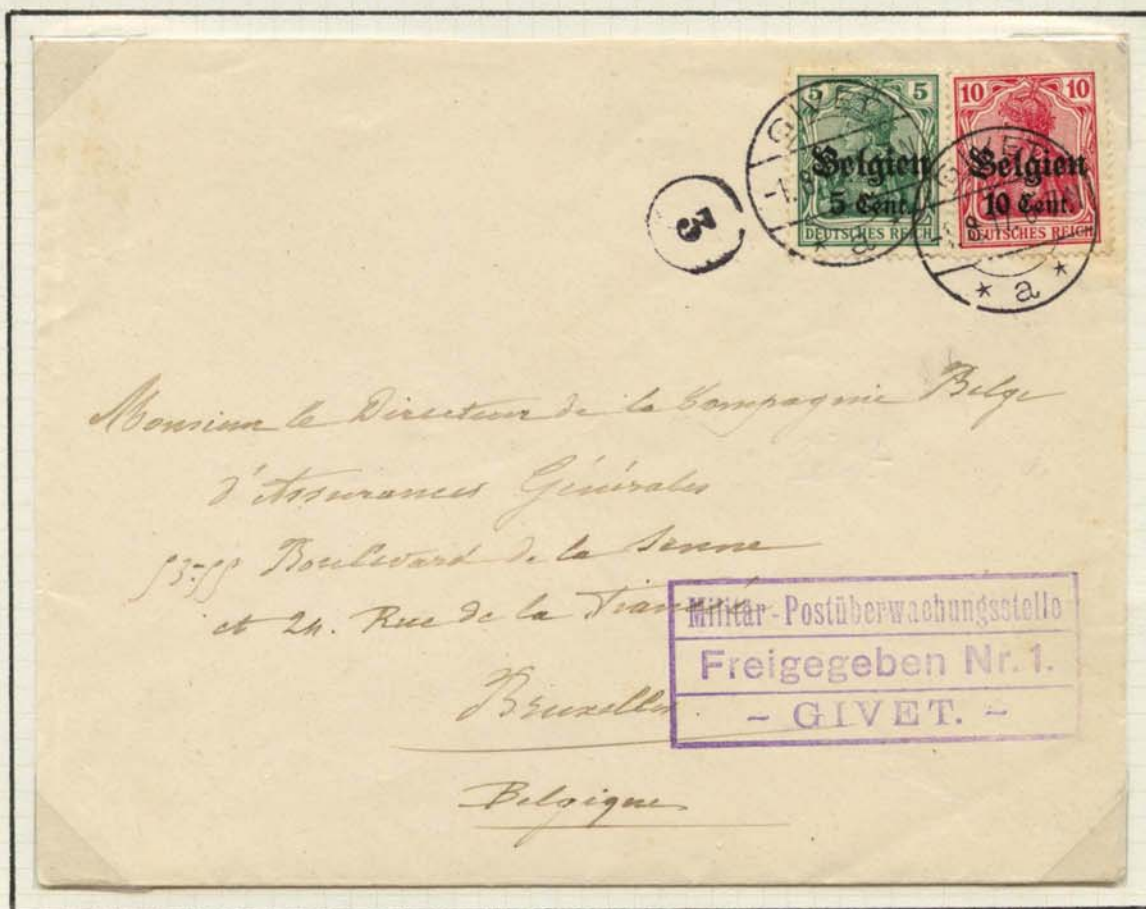 5 5
Belgien
5 Cent.
DEUTSCHES REICH
10 10
Belgien
10 Cent.
DEUTSCHES REICH
GIVET
-1.8
* a *
GIVET
8.17.
* a *
3
Monsieur le Directeur de la Compagnie Belge
d'Assurances Générales
53-55 Boulevard de la Senne
et 24. Rue de la
Bruxelles
Belgique
Militär-Postüberwachungsstelle
Freigegeben Nr. 1.
- GIVET. -